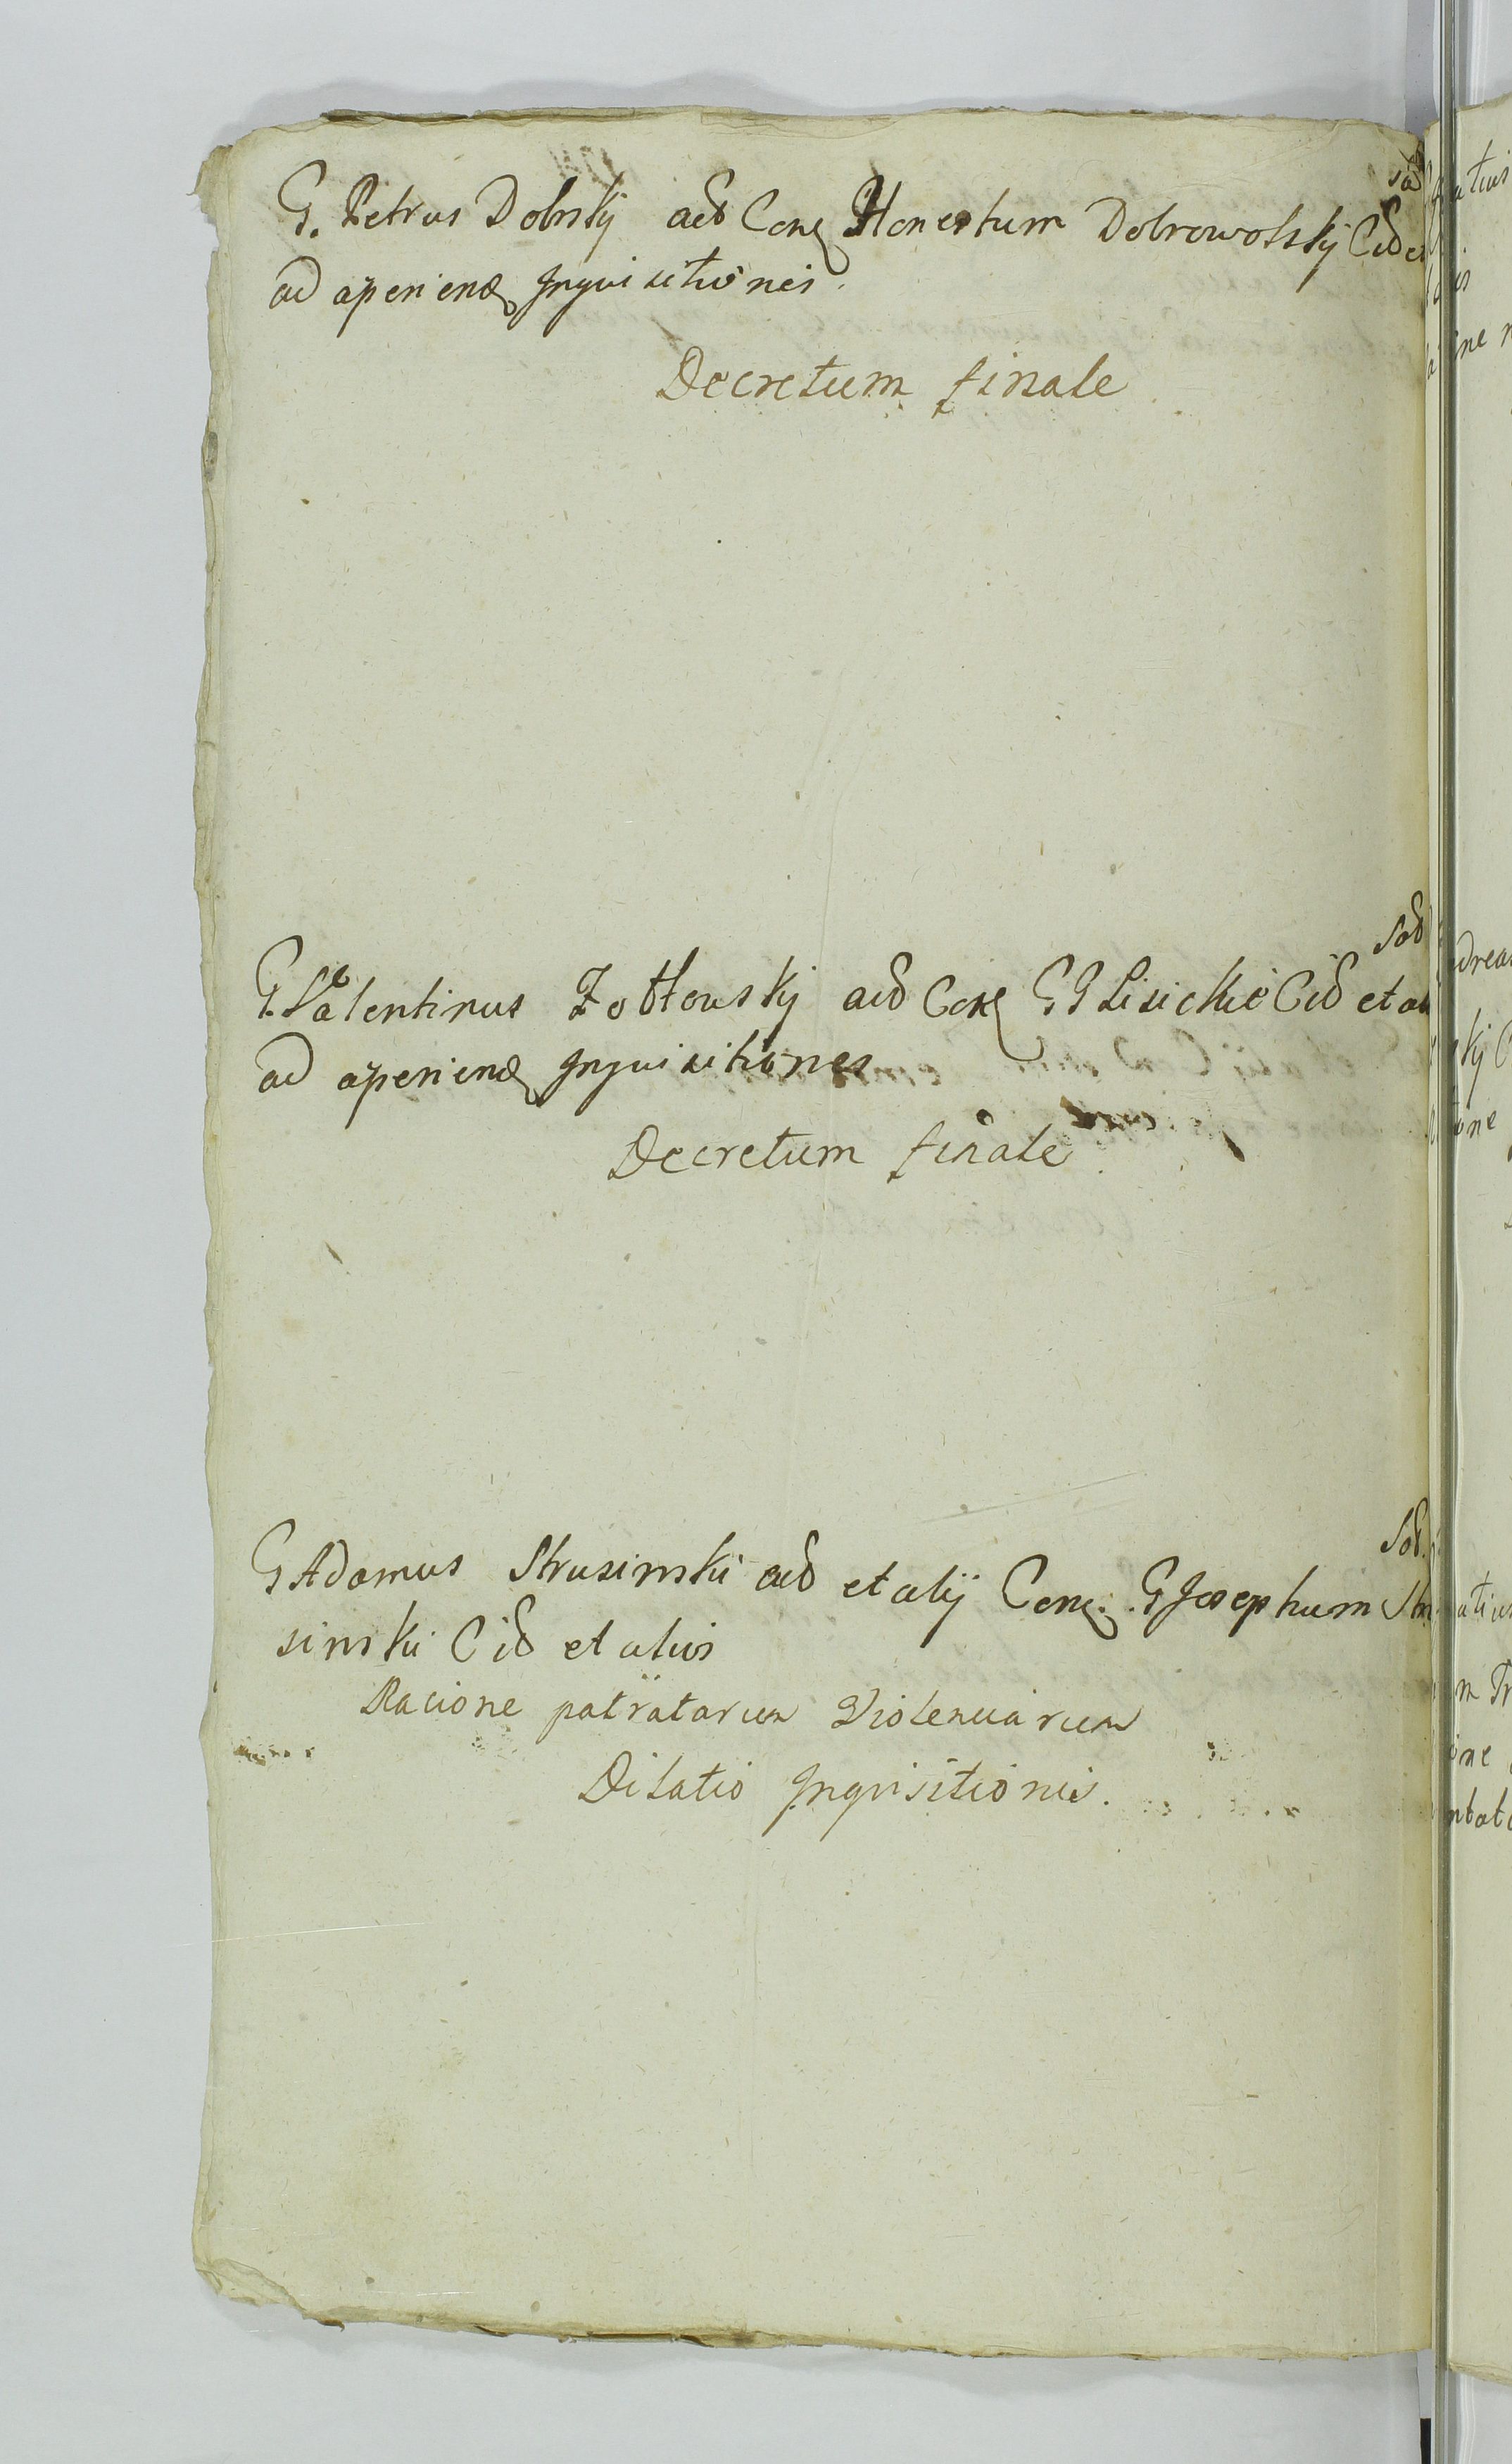 Sod
G. Petrus Dobrskÿ acd Conq Honestum Dobrowolskÿ Cid et
ad aperiend Inquisitionis.
Decretum finale
Sod
G. Valentinus Zołtowskÿ acd Conq GG Lisickie Cid et al
ad aperiend Inquisitiones
Decretum finale
Sod.
G Adamus Strusinski acd et alÿ Conq. G Josephum Stru
sinski Cid et aliis
Racione patratarum Violenciarum
Dilatio Inquisitionis.